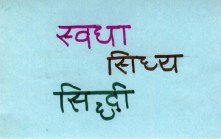 स्वधा
सिध्य
सिद्धी